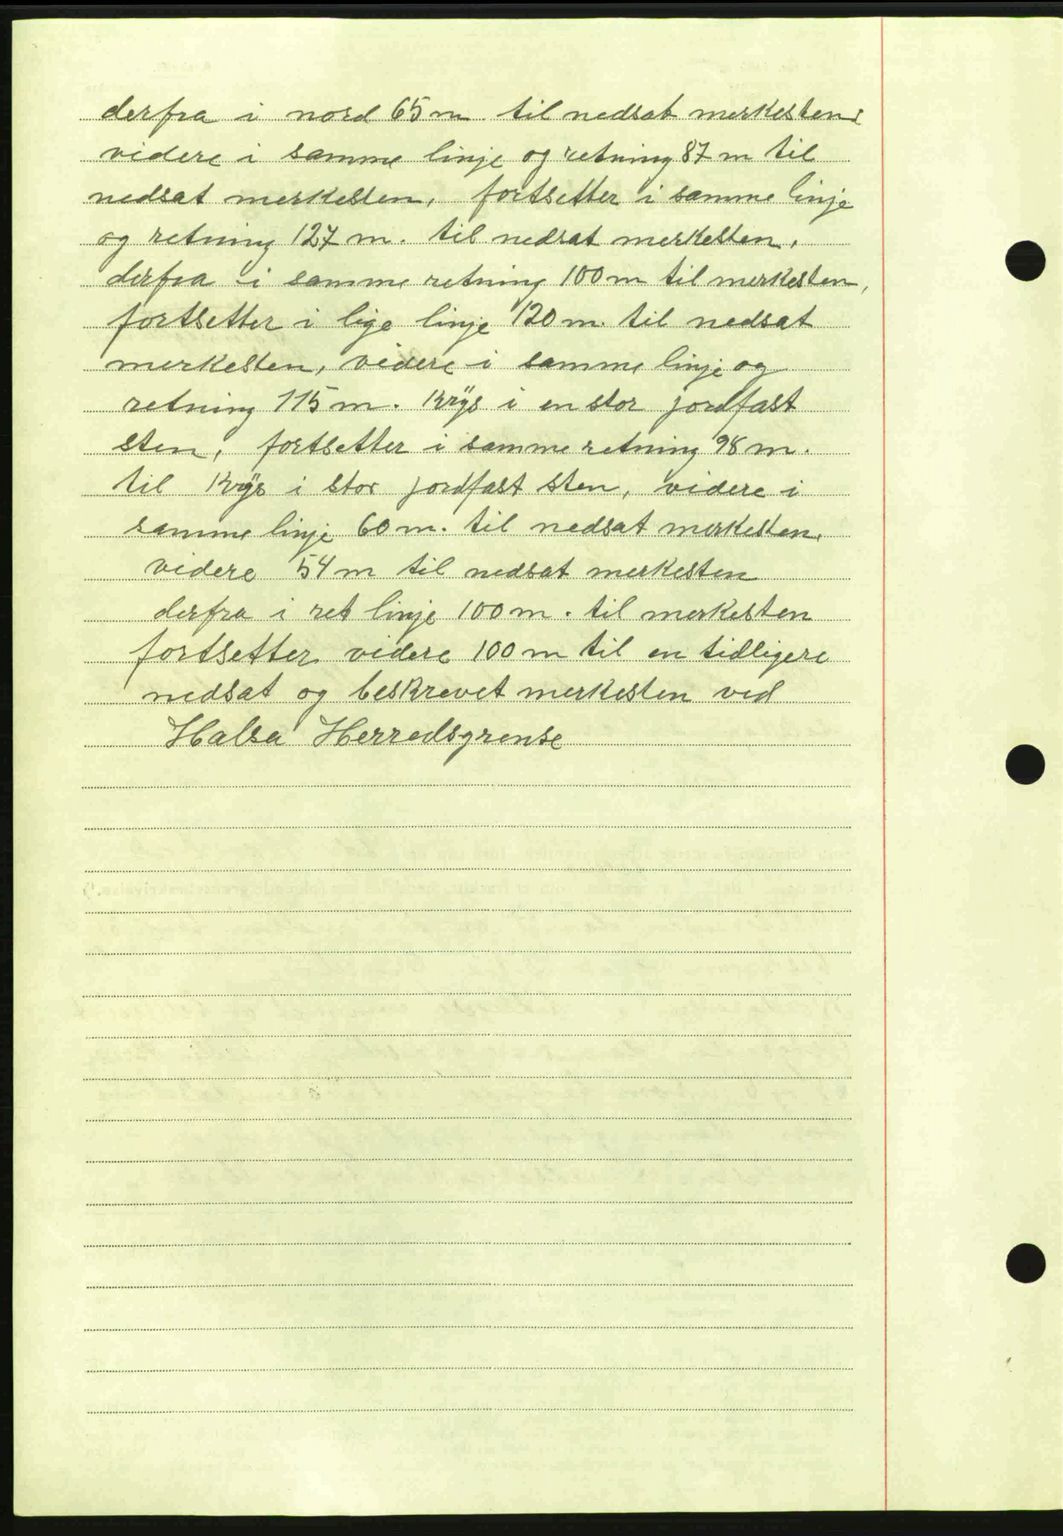 derfra i nord 65 m. til nedsat merkesten,
videre i samme linje og retning 87 m til
nedsat merkesten, fortsetter i samme linje
og retning 127 m. til nedsat merkesten,
derfra i samme retning 100 m til merkesten,
fortsetter i lige linje 120 m til nedsat
merkesten, videre i samme linje og
retning 115 m. Krÿs i en stor jordfast
sten, fortsetter i samme retning 98 m.
til Krÿs i stor jordfast sten, videre i
samme linje 60 m. til nedsat merkesten,
videre 54 m til nedsat merkesten
derfra i ret linje 100 m. til merkesten
fortsetter videre 100 m til en tidligere
nedsat og beskrevet merkesten ved
Halsa Herredsgrense